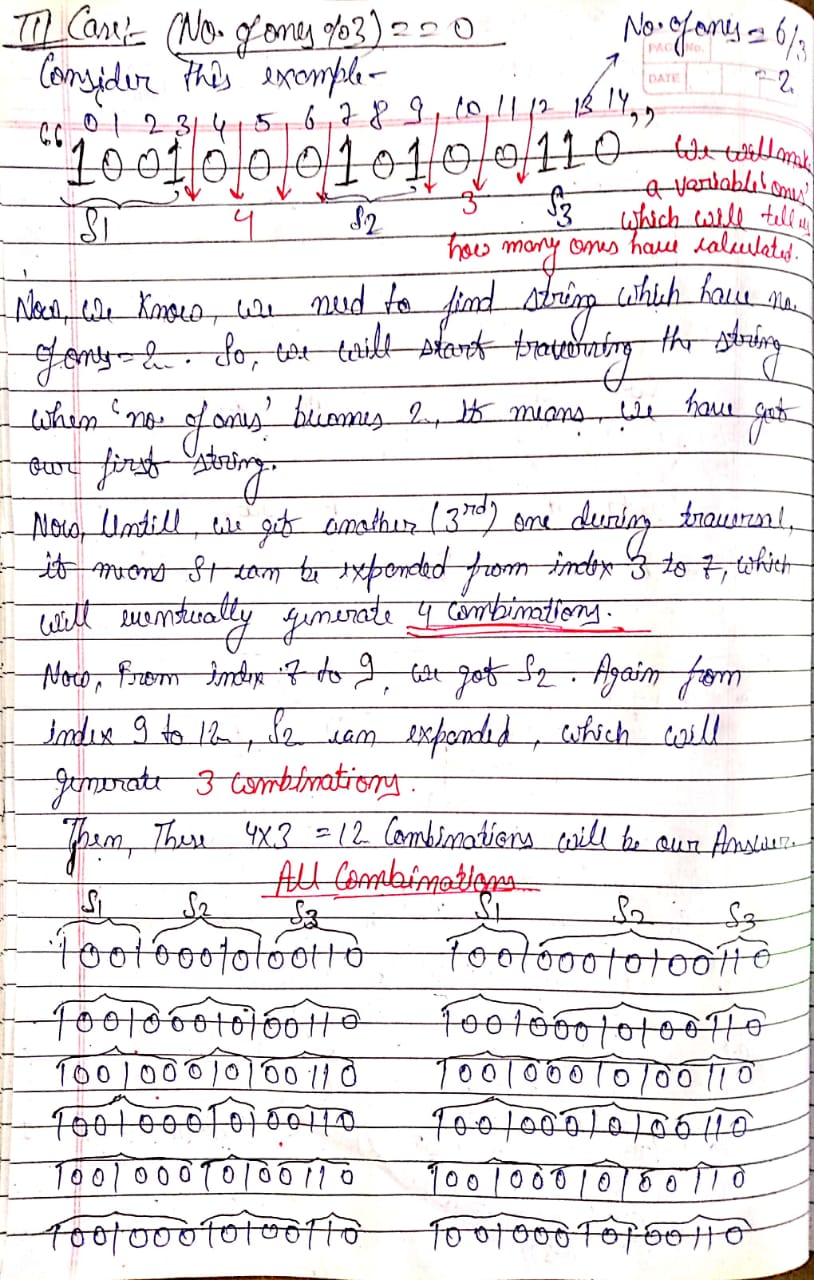 III Case:- (No. of ones %3) == 0
No. of ones = 6/3
= 2
PAGE No.
DATE
Consider this example-
0 1 2 3 4 5 6 7 8 9 10 11 12 13 14
"100100010100110"
S1 4 S2 3 S3
We will make
a variable 'ones'
which will tell us
how many ones have calculated.
Now, We Know, we need to find string which have no.
of ones = 2. So, we will start traversing the string
when 'no. of ones' becomes 2, It means, we have got
our first string.
Now, Untill, we get another (3rd) one during traversal,
it means S1 can be expanded from index 3 to 7, which
will eventually generate 4 combinations.
Now, From index 7 to 9, we got S2. Again from
index 9 to 12, S2 can expanded, which will
generate 3 combinations.
Then, These 4x3 = 12 Combinations will be our Answer.
All Combinations
S1 S2 S3 S1 S2 S3
100100010100110 100100010100110
100100010100110 100100010100110
100100010100110 100100010100110
100100010100110 100100010100110
100100010100110 100100010100110
100100010100110 100100010100110